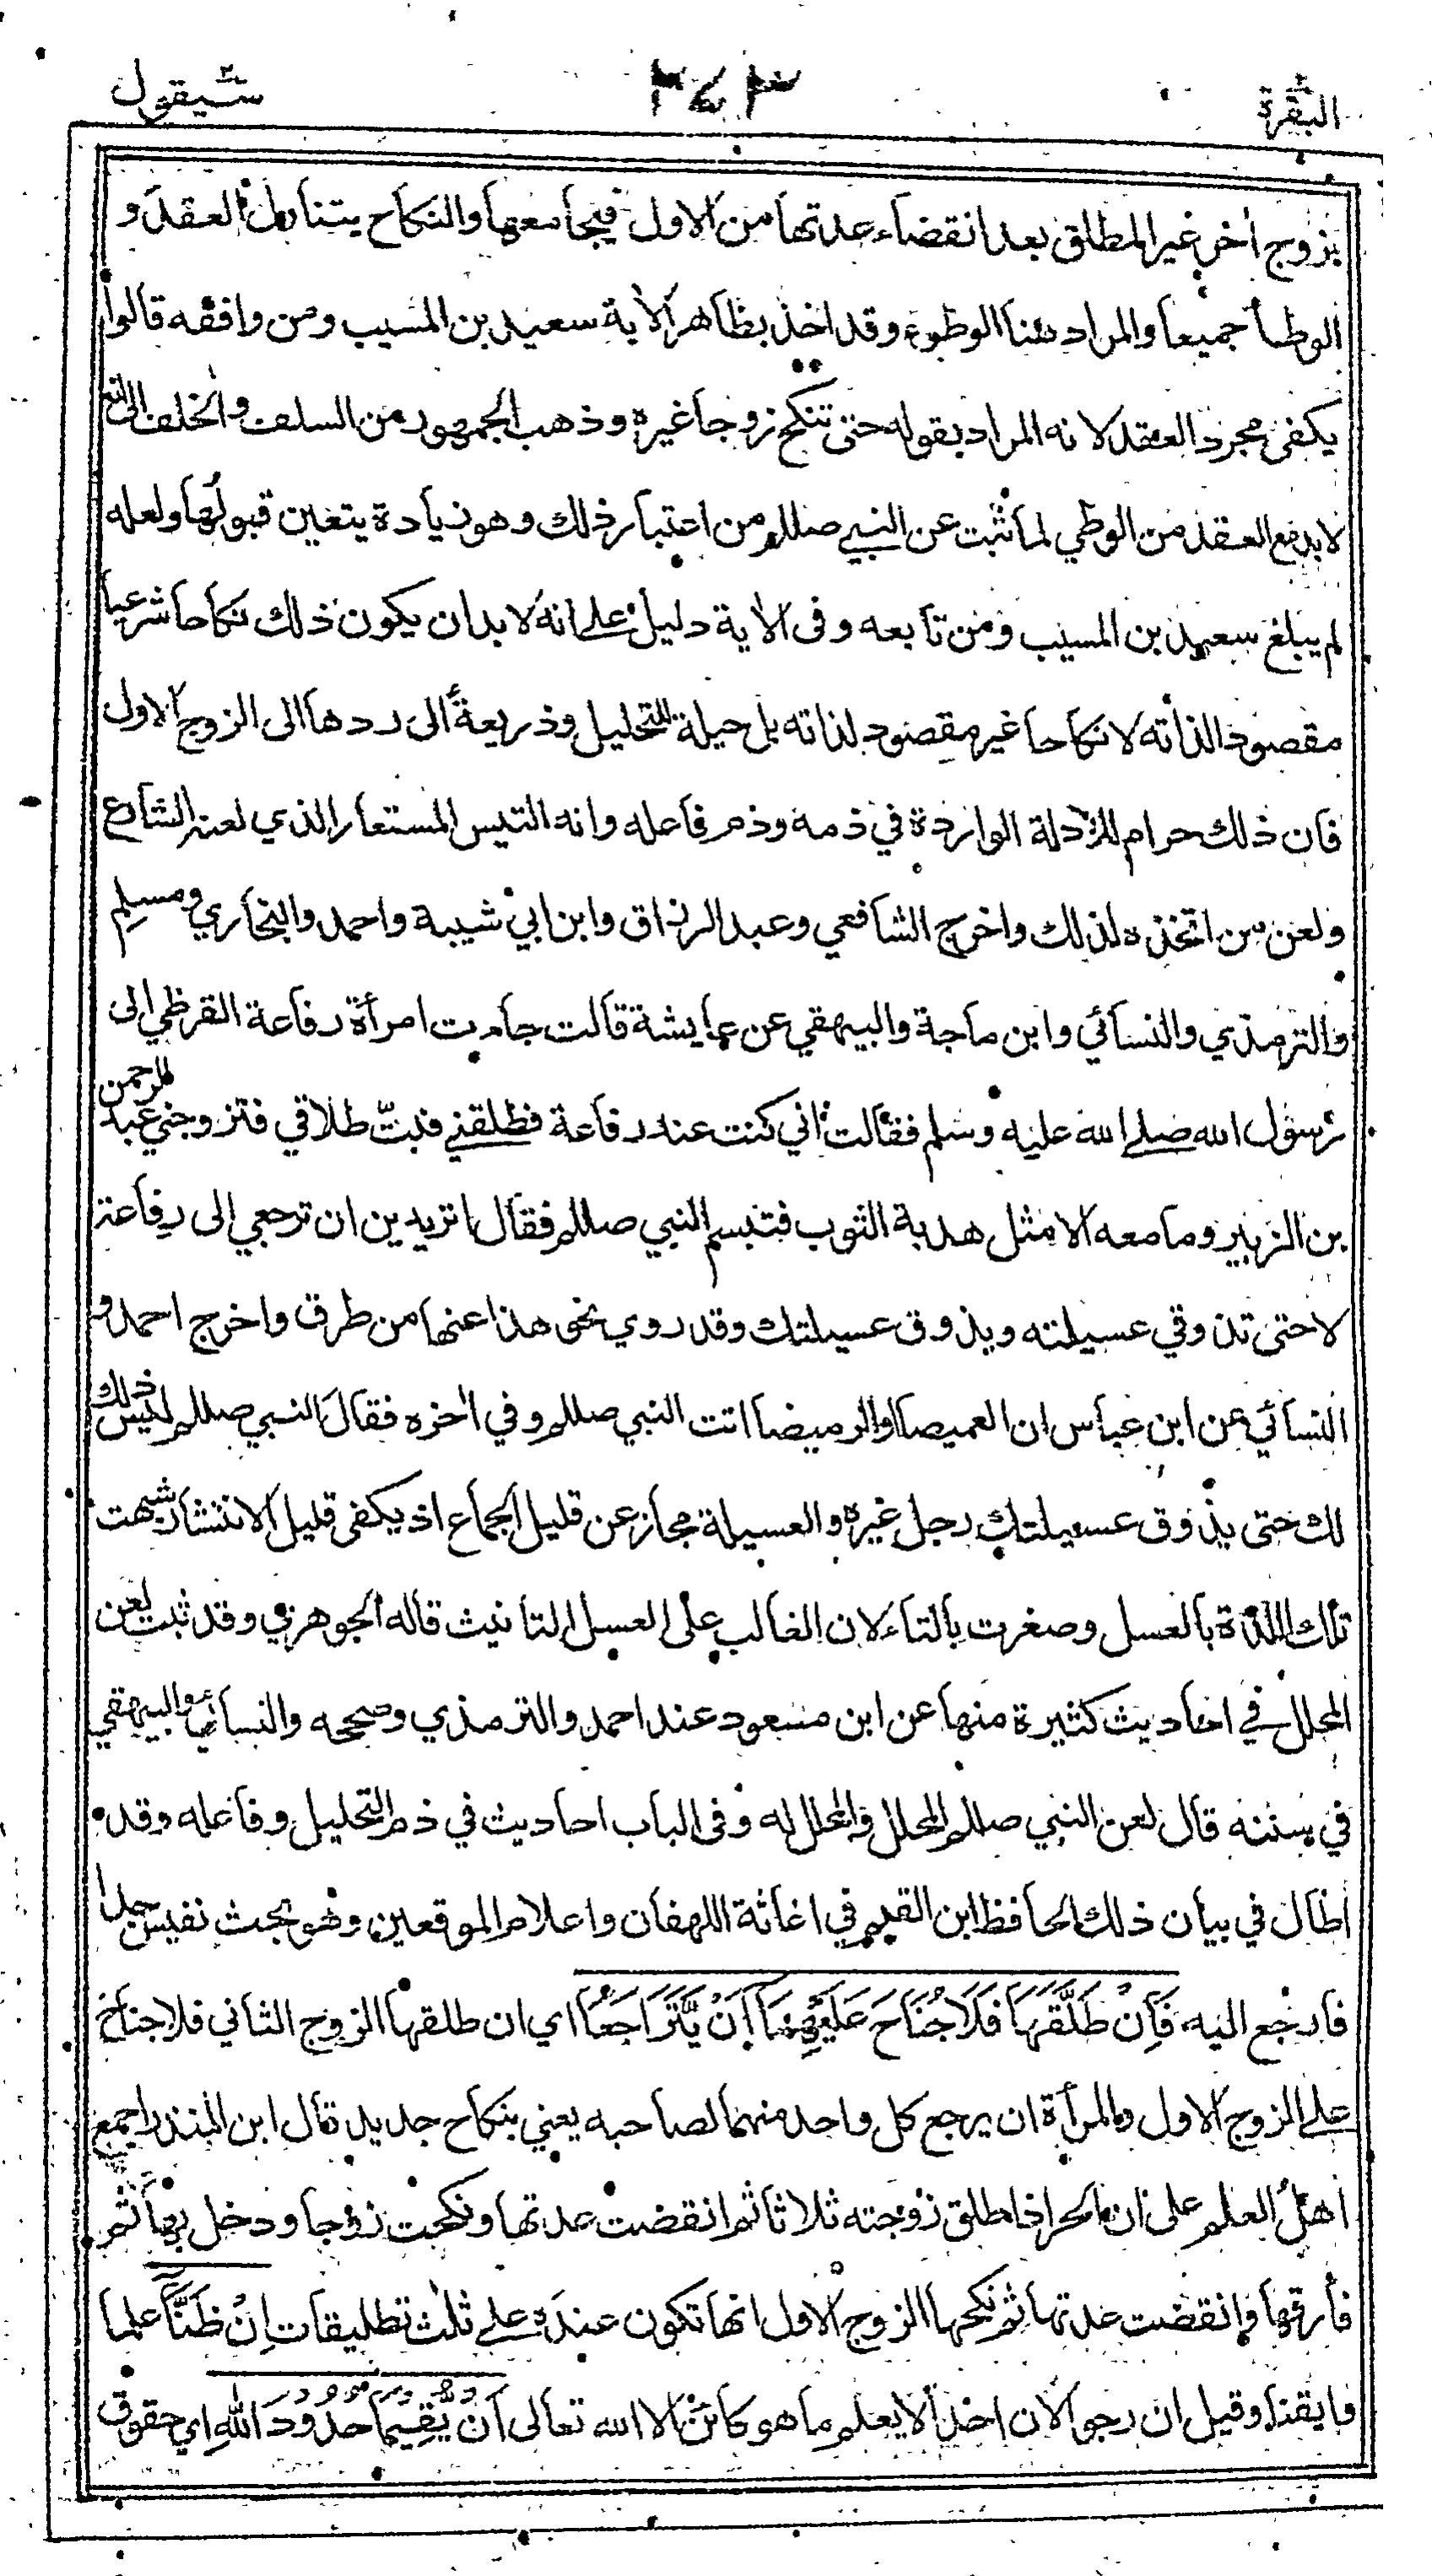 البقرة ٢ ٣٤٣ سيقول ٢
بزوج اخر غير المطلق بعد انقضاء عدتها من الاول فيجامعها والنكاح يتناول العقد و
الوطأ جميعا والمراد هنا الوطوء وقد اخذ بظاهر الاية سعيد بن المسيب ومن وافقه قالوا
يكفى مجرد العقد لانه المراد بقوله حتى تنكح زوجا غيره وذهب الجمهور من السلف والخلف الى انه
لابد مع العقد من الوطي لما ثبت عن النبي صللم من اعتبار ذلك وهو زيادة يتعين قبولها ولعله
لم يبلغ سعيد بن المسيب ومن تابعه وفى الاية دليل على انه لا بد ان يكون ذلك نكاحا شرعيا
مقصودا لذاته لا نكاحا غير مقصود لذاته بل حيلة للتحليل وذريعة الى ردها الى الزوج الاول
فان ذلك حرام للادلة الواردة في ذمه وذم فاعله وانه التيس المستعار الذي لعنه الشارع
ولعن من اتخذه لذلك واخرج الشافعي وعبد الرزاق وابن ابي شيبة واحمد والبخاري ومسلم
والترمذي والنسائي وابن ماجة والبيهقي عن عايشة قالت جاءت امرأة رفاعة القرظي الى
رسول الله صلى الله عليه وسلم فقالت اني كنت عند رفاعة فطلقني فبتّ طلاقي فتزوجني عبد الرحمن
بن الزبير وما معه الا مثل هدبة الثوب فتبسم النبي صللم فقال اتريدين ان ترجعي الى رفاعة
لا حتى تذوقي عسيلته ويذوق عسيلتك وقد روي نحو هذا عنها من طرق واخرج احمد و
النسائي عن ابن عباس ان العميصا او الرميضا اتت النبي صللم وفي اخره فقال النبي صللم ليس ذلك
لك حتى يذوق عسيلتك رجل غيره والعسيلة مجاز عن قليل الجماع اذ يكفى قليل الانتشار شبهت
تلك اللذة بالعسل وصغرت بالتاء لان الغالب على العسل التانيث قاله الجوهري وقد ثبت لعن
المحلل في احاديث كثيرة منها عن ابن مسعود عند احمد والترمذي وصححه والنسائي والبيهقي
في سننه قال لعن النبي صللم المحلل والمحلل له وفى الباب احاديث في ذم التحليل وفاعله وقد
اطال في بيان ذلك الحافظ ابن القيم في اغاثة اللهفان واعلام الموقعين وهو بحث نفيس جدا
فارجع اليه فَاِنْ طَلَّقَهَا فَلَا جُنَاحَ عَلَيْهِمَا اَنْ يَّتَرَاجَعَا اي ان طلقها الزوج الثاني فلا جناح
على الزوج الاول والمرأة ان يرجع كل واحد منهما لصاحبه يعني بنكاح جديد قال ابن المنذر اجمع
اهل العلم على ان الحر اذا طلق زوجته ثلاثا ثم انقضت عدتها ونكحت زوجا ودخل بها ثم
فارقها وانقضت عدتها ثم نكحها الزوج الاول انها تكون عنده على ثلث تطليقات اِنْ ظَنَّا علما
وايقنا وقيل ان رجوا لان احدا لا يعلم ما هو كائن الا الله تعالى اَنْ يُّقِيْمَا حُدُوْدَ اللهِ اي حقوق